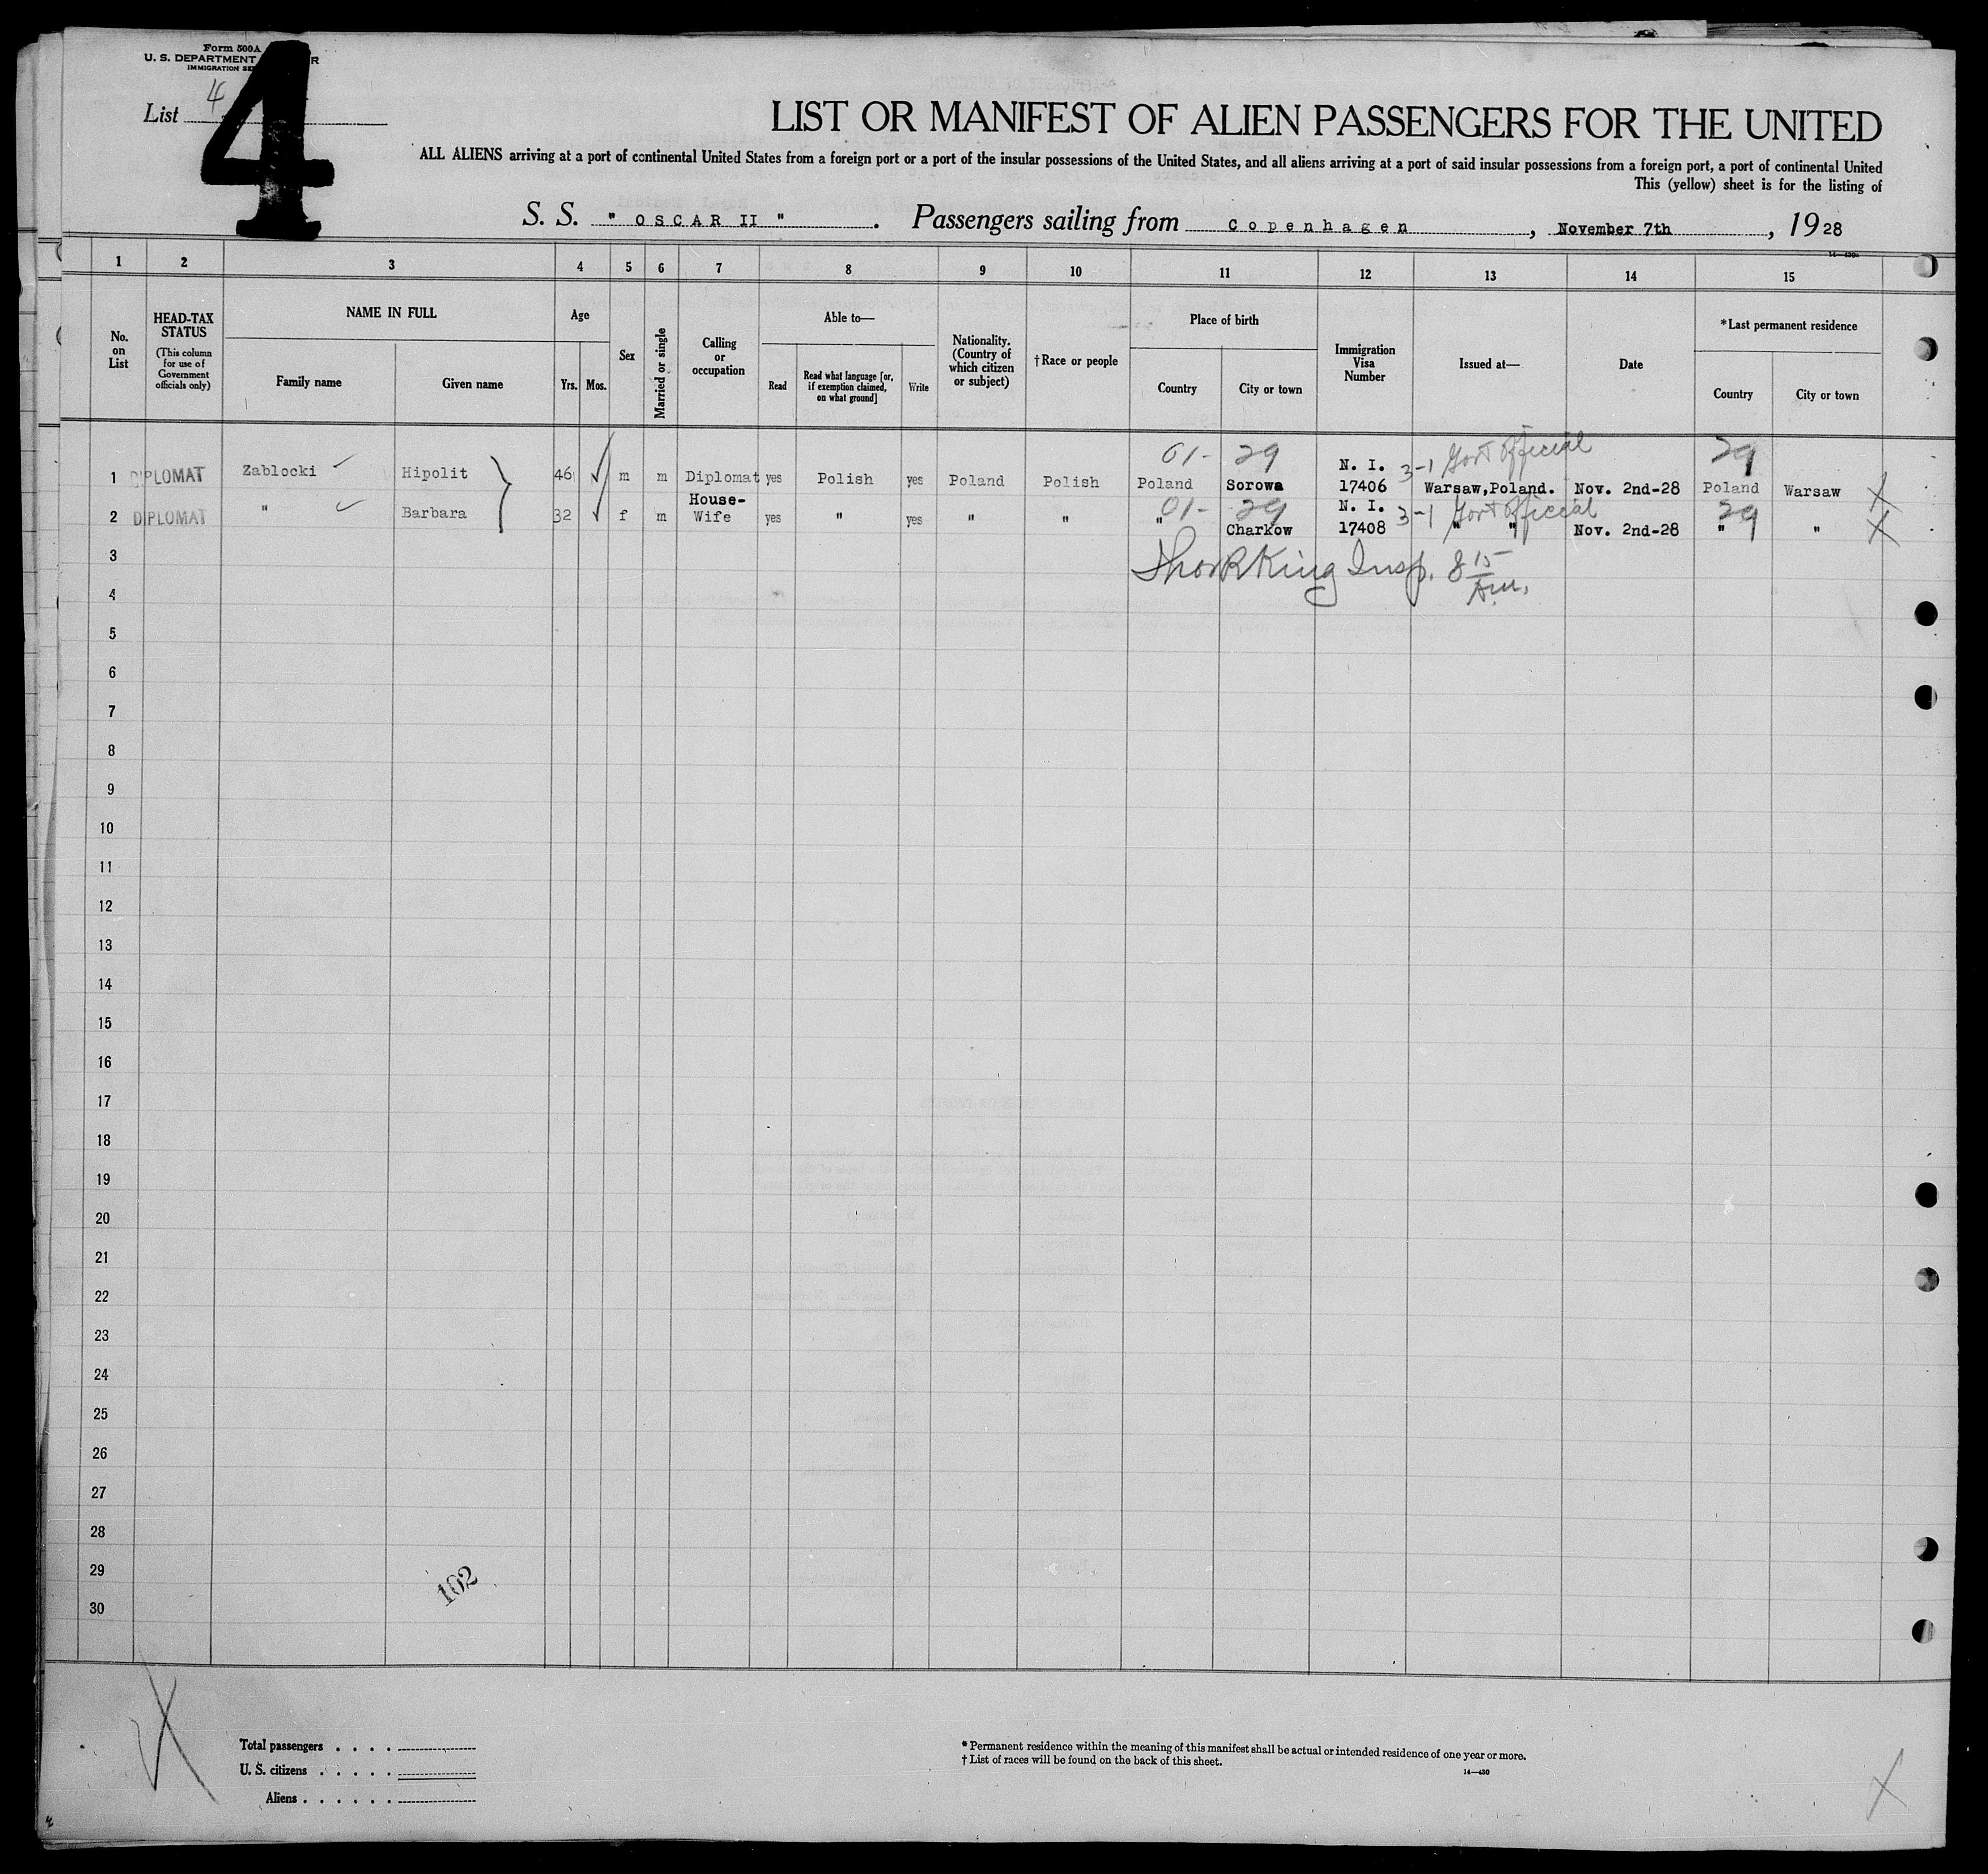 Form 500A
U. S. DEPARTMENT
IMMIGRATION
List 4
4
LIST OR MANIFEST OF ALIEN PASSENGERS FOR THE UNITED
ALL ALIENS arriving at a port of continental United States from a foreign port or a port of the insular possessions of the United States, and all aliens arriving at a port of said insular possessions from a foreign port, a port of continental United
This (yellow) sheet is for the listing of
S. S. " OSCAR II ". Passengers sailing from Copenhagen, November 7th, 1928
14—430
1 2 3 4 5 6 7 8 9 10 11 12 13 14 15
No. on List
HEAD-TAX STATUS
(This column for use of Government officials only)
NAME IN FULL
Family name
Given name
Age
Yrs. Mos.
Sex
Married or single
Calling or occupation
Able to—
Read
Read what language [or, if exemption claimed, on what ground]
Write
Nationality. (Country of which citizen or subject)
†Race or people
Place of birth
Country
City or town
Immigration Visa Number
Issued at—
Date
*Last permanent residence
Country
City or town
01- 29 3-1 Gov't Official 29
1 DIPLOMAT Zablocki Hipolit 46 m m Diplomat yes Polish yes Poland Polish Poland Sorowa N. I. 17406 Warsaw, Poland. Nov. 2nd-28 Poland Warsaw X
01- 29 3-1 Gov't Official 29
2 DIPLOMAT " Barbara 32 f m House-Wife yes " yes " " " Charkow N. I. 17408 " " Nov. 2nd-28 " " X
3
King Insp. 8 15 A.M.
4
5
6
7
8
9
10
11
12
13
14
15
16
17
18
19
20
21
22
23
24
25
26
27
28
29
30
102
Total passengers . . . .
U. S. citizens . . . . .
Aliens . . . . . .
* Permanent residence within the meaning of this manifest shall be actual or intended residence of one year or more.
† List of races will be found on the back of this sheet.
14—430